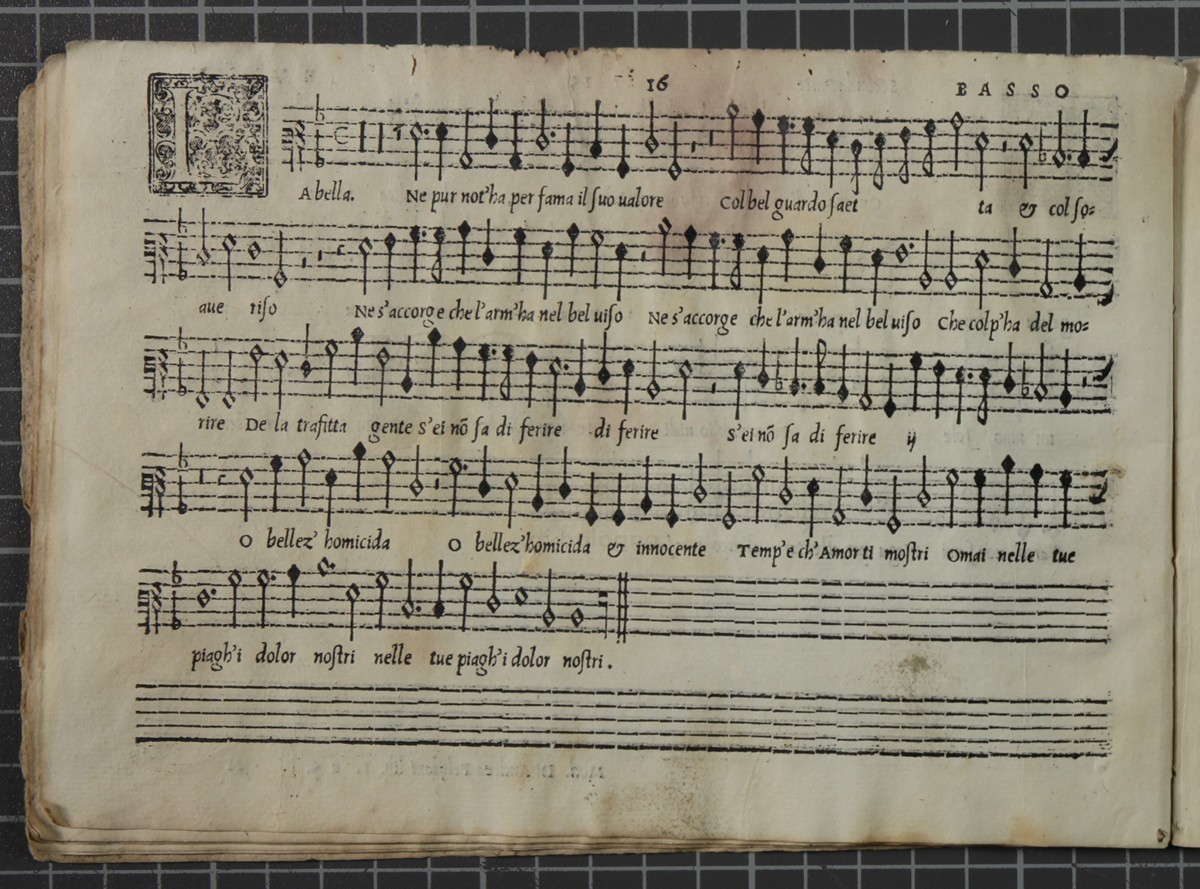 16 BASSO
LA bella. Ne pur not'ha per fama il suo ualore Col bel guardo saet ta & col so=
aue riso Ne s'accorge che l'arm'ha nel bel uiso Ne s'accorge che l'arm'ha nel bel uiso Che colp'ha del mo=
rire De la trafitta gente s'ei nō sa di ferire di ferire s'ei nō sa di ferire ij
O bellez' homicida O bellez'homicida & innocente Temp'e ch'Amor ti mostri Omai nelle tue
piagh'i dolor nostri nelle tue piagh'i dolor nostri.